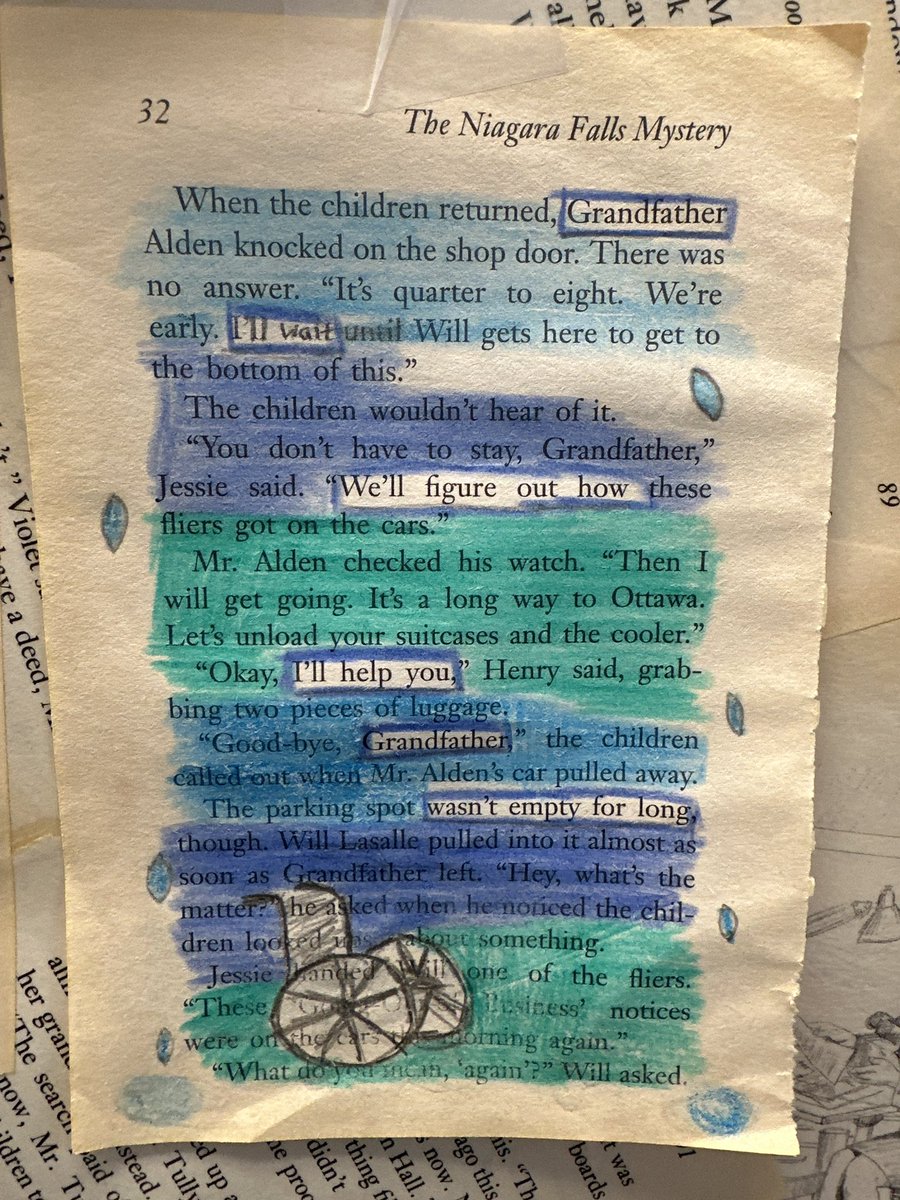 32 The Niagara Falls Mystery
When the children returned, Grandfather
Alden knocked on the shop door. There was
no answer. “It’s quarter to eight. We’re
early. I’ll wait until Will gets here to get to
the bottom of this.”
The children wouldn’t hear of it.
“You don’t have to stay, Grandfather,”
Jessie said. “We’ll figure out how these
fliers got on the cars.”
Mr. Alden checked his watch. “Then I
will get going. It’s a long way to Ottawa.
Let’s unload your suitcases and the cooler.”
“Okay, I’ll help you,” Henry said, grab-
bing two pieces of luggage.
“Good-bye, Grandfather,” the children
called out when Mr. Alden’s car pulled away.
The parking spot wasn’t empty for long,
though. Will Lasalle pulled into it almost as
soon as Grandfather left. “Hey, what’s the
matter?” he asked when he noticed the chil-
dren looked about something.
Jessie handed Will one of the fliers.
“These Business’ notices
were on the cars morning again.”
“What do you mean, ‘again’?” Will asked.
89
Violet
have a deed,
“The search
now, Mr.
didn’t
Hall.
now.
boards